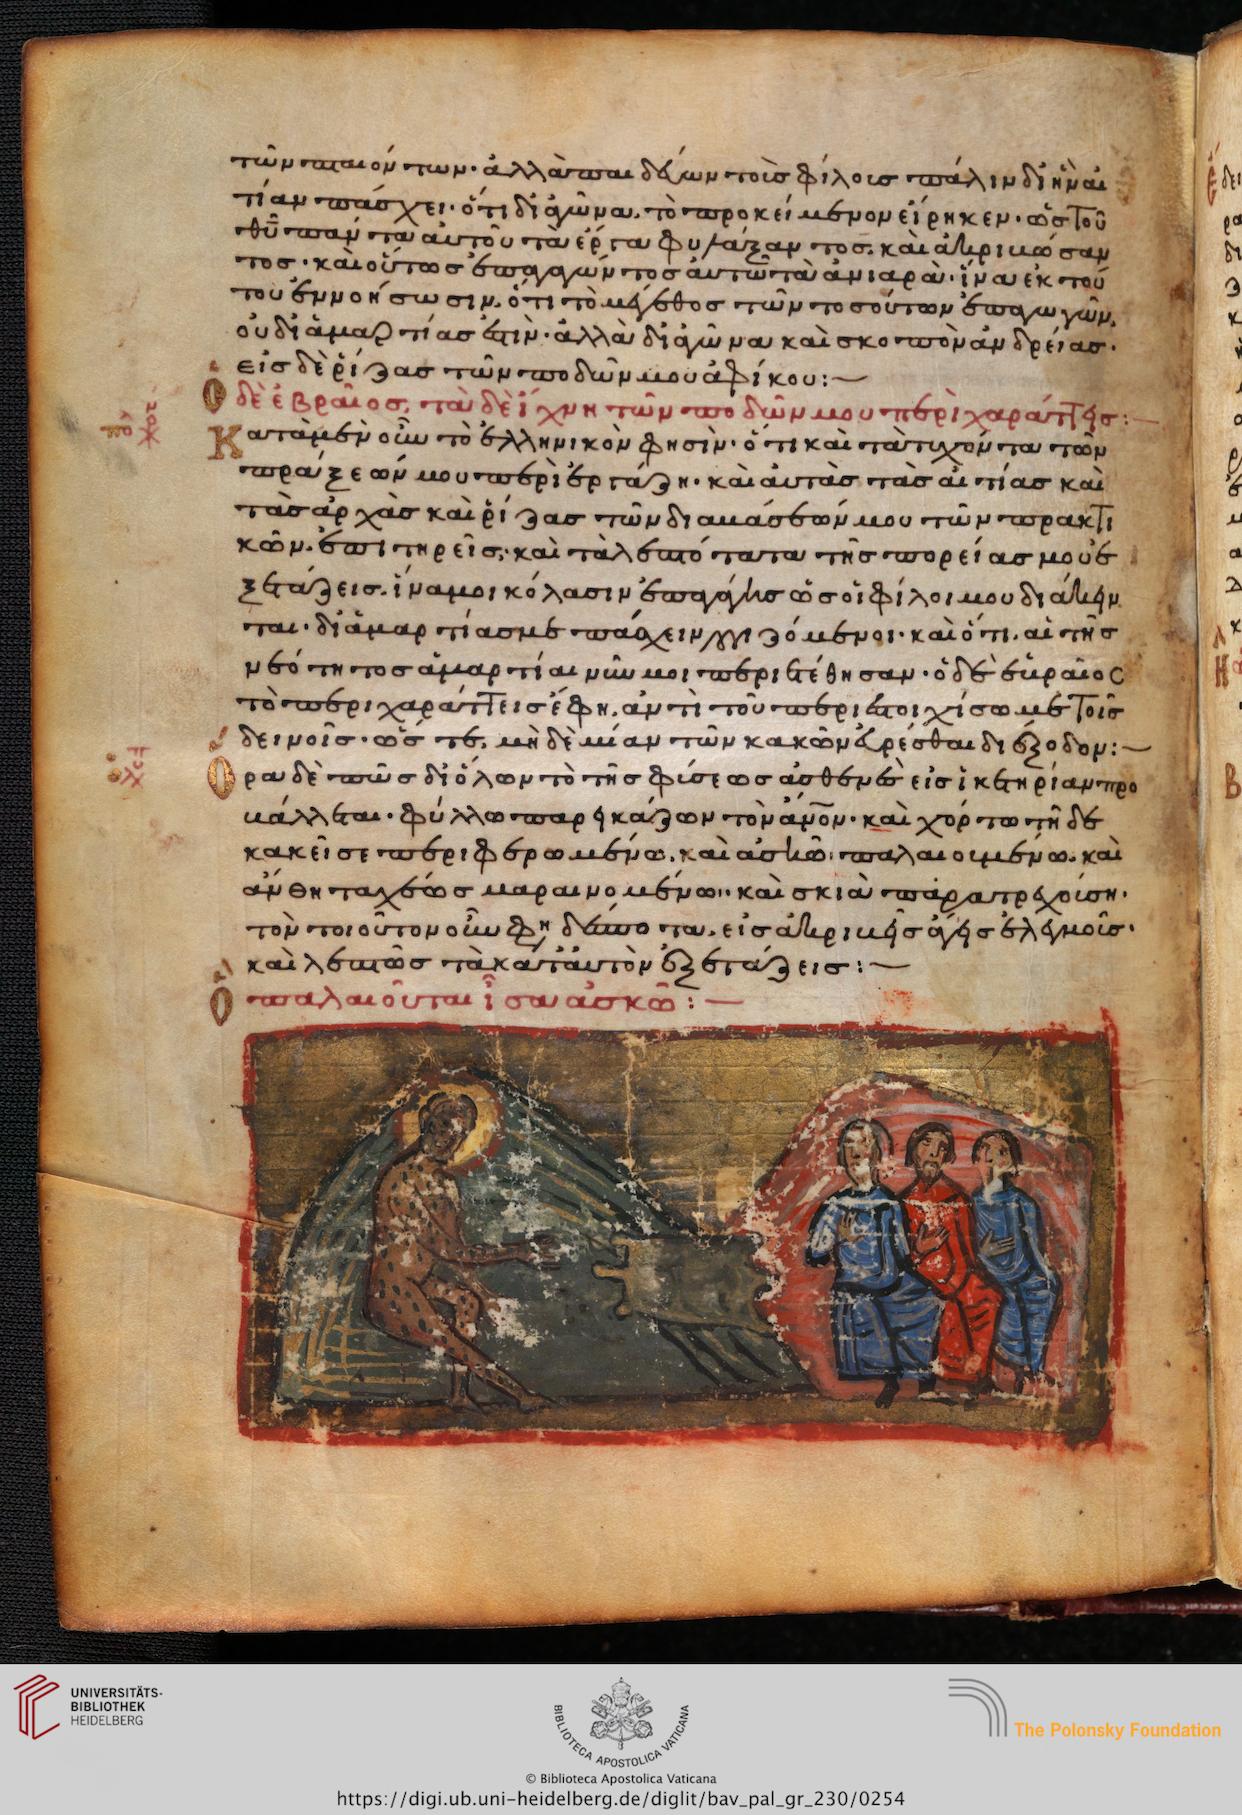 τῶν πταιόντων· ἀλλὰ παιδεύων τοῖς φίλοις πάλιν δι ἣν αἰ
τίαν πάσχει· ὅτι δι ἀγῶνα. τὸ προκείμενον εἴρηκεν· ὡς τοῦ
θῦ πᾶν τα αὐτοῦ τὰ ἔργα φυλάξαντος. καὶ ἀκριβώσαν
τος· καὶ οὕτως ἐπαγαγόντος αὐτῶ τὰ ἀνιαρὰ· ἵνα ἐκ τού
του ἐννοήσωσιν. ὅτι τὸ μέγεθος τῶν τοσούτων ἐπαγωγῶν.
οὐ δι ἁμαρτίας ἐστὶν· ἀλλὰ δι ἀγῶνα καὶ σκοπὸν ἀνδρείας·
εἰς δὲ ῥίζας τῶν ποδῶν μου ἀφίκου:
Ὁ δὲ ἑβραῖος. τὰ δὲ ἴχνη τῶν ποδῶν μου περιχαράττεις:
Κατὰ μὲν οὖν τὸ ἑλληνικὸν φησὶν· ὅτι καὶ τὰ τυχόντα τῶν
πράξεών μου περιεργάζη· καὶ αὐτὰς τὰς αἰτίας καὶ
τὰς ἀρχὰς καὶ ῥίζας τῶν διαμάσεών μου τῶν πρακτι
κῶν. ἐπιτηρεῖς· καὶ τὰ λεπτότατα τῆς πορείας μου ἐ
ξετάζεις. ἵνα μοι κόλασιν ἐπαγάγης ὡς οἱ φίλοι μου διάκειν
ται· δι ἁμαρτίας με πάσχειν λογιζόμενοι· καὶ ὅτι. αἱ τῆς
νεότητος ἁμαρτίαι νῦν μοι περιετέθησαν· ὁ δὲ ἑβραῖος
τὸ περιχαράττεις ἔφη. ἀντὶ τοῦ περιστοιχίσω με τοῖς
δεινοῖς· ὥς τε. μὴ δὲ μίαν τῶν κακῶν εὑρέσθαι διέξοδον:
Ὅρα δὲ πῶς δι ὅλων τὸ τῆς φύσεως ἀσθενὲς εἰς ἱκετηρίαν προ
βάλλεται· φύλλω παρεικάζων τὸν ἄνον· καὶ χόρτω τῆ δε
κακεῖσε περιφερομένω. καὶ ἀσκῶ παλαιουμένω. καὶ
ἄνθη ταχέως μαραινομένω· καὶ σκιὰ παρατρεχούση·
τὸν τοιοῦτον οὖν φη δέσποτα. εἰς ἀκριβεῖς ἄγεις ἐλεγμοῖς·
καὶ λεπτῶς τὰ κατ αὐτὸν ἐξετάζεις:
Ὃ παλαιοῦται ἴσα ἀσκῶ:
UNIVERSITÄTS-
BIBLIOTHEK
HEIDELBERG
BIBLIOTECA APOSTOLICA VATICANA
The Polonsky Foundation
© Biblioteca Apostolica Vaticana
https://digi.ub.uni-heidelberg.de/diglit/bav_pal_gr_230/0254